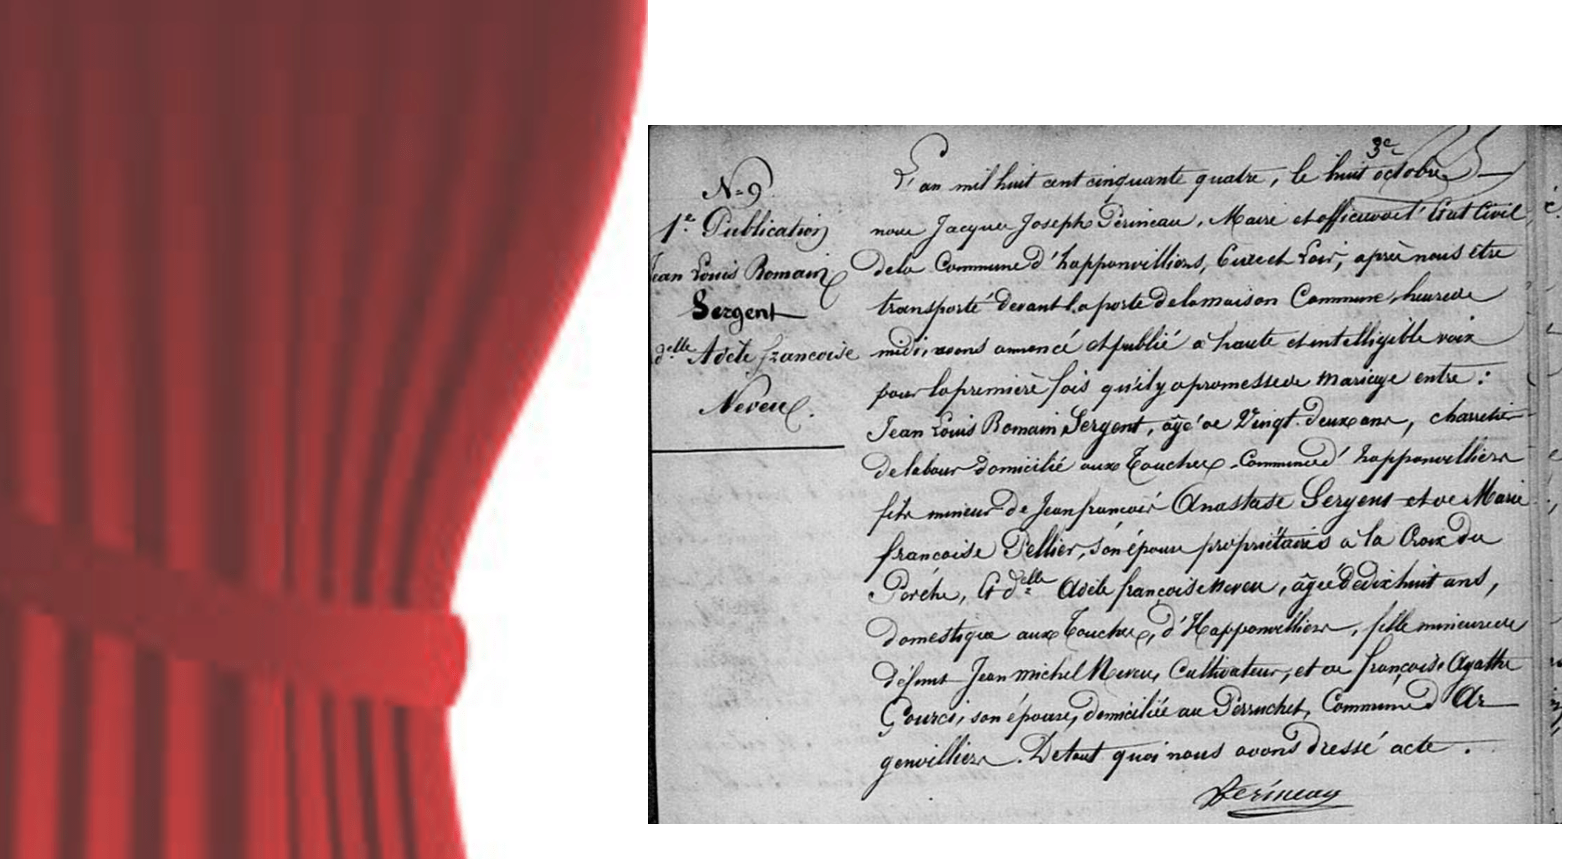 N° 9
1re Publication
Jean Louis Romain
Sergent
delle Adèle françoise
Neveu.
3e
L'an mil huit cent cinquante quatre, le huit octobre
nous Jacques Joseph Perineau, Maire et officier de l'Etat Civil
de la Commune d'happonvilliers, Eure et Loir, après nous être
transporté devant la porte de la maison Commune, heure de
midi, avons annoncé et publié à haute et intelligible voix
pour la première fois qu'il y a promesse de mariage entre :
Jean Louis Romain Sergent, âgé de Vingt-deux ans, charretier
de labour domicilié aux Touches, Commune d'happonvilliers
fils mineur de Jean françois Anastase Sergent et de Marie
françoise Pellier, son épouse propriétaires à la Croix du
Porche, Et delle Adèle françoise Neveu, âgée de dix huit ans,
domestique aux Touches, d'Happonvilliers, fille mineure de
défunt Jean michel Neveu, Cultivateur, et de françoise Agathe
Gource, son épouse, domiciliée au Perruchet, Commune d'Ar
genvilliers. De tout quoi nous avons dressé acte.
Perineau